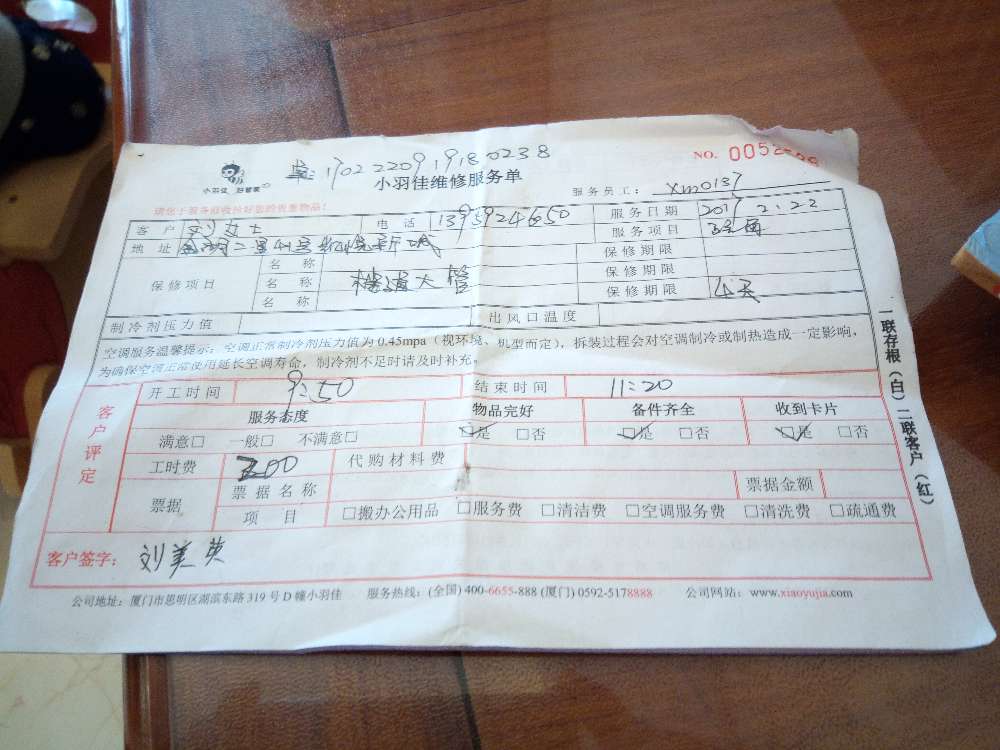 170220919180238
NO. 0052
小羽佳 好管家
小羽佳维修服务单
服务员工: Xm0137
请您于服务前收捡好您的贵重物品!
客户 刘女士 电话 1395924650 服务日期 2017 2.22
地址 服务项目
名称 保修期限
保修项目 名称 楼道大管 保修期限
名称 保修期限 4天
制冷剂压力值 出风口温度
空调服务温馨提示: 空调正常制冷剂压力值为 0.45mpa(视环境、机型而定),拆装过程会对空调制冷或制热造成一定影响,
为确保空调正常使用延长空调寿命,制冷剂不足时请及时补充。
客户评定
开工时间 9:50 结束时间 11:20
服务态度 物品完好 备件齐全 收到卡片
满意□ 一般□ 不满意□ ☑是 □否 ☑是 □否 ☑是 □否
工时费 200 代购材料费
票据 票据名称 票据金额
项目 □搬办公用品 □服务费 □清洁费 □空调服务费 □清洗费 □疏通费
客户签字: 刘美英
一联存根(白)二联客户(红)
公司地址: 厦门市思明区湖滨东路 319 号 D 幢小羽佳 服务热线: (全国) 400-6655-888 (厦门) 0592-5178888 公司网站: www.xiaoyujia.com